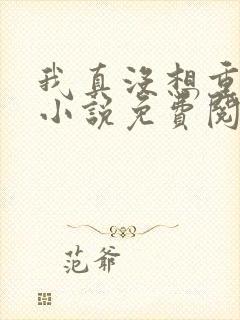 我真沒想重
小說免費閱
范爺